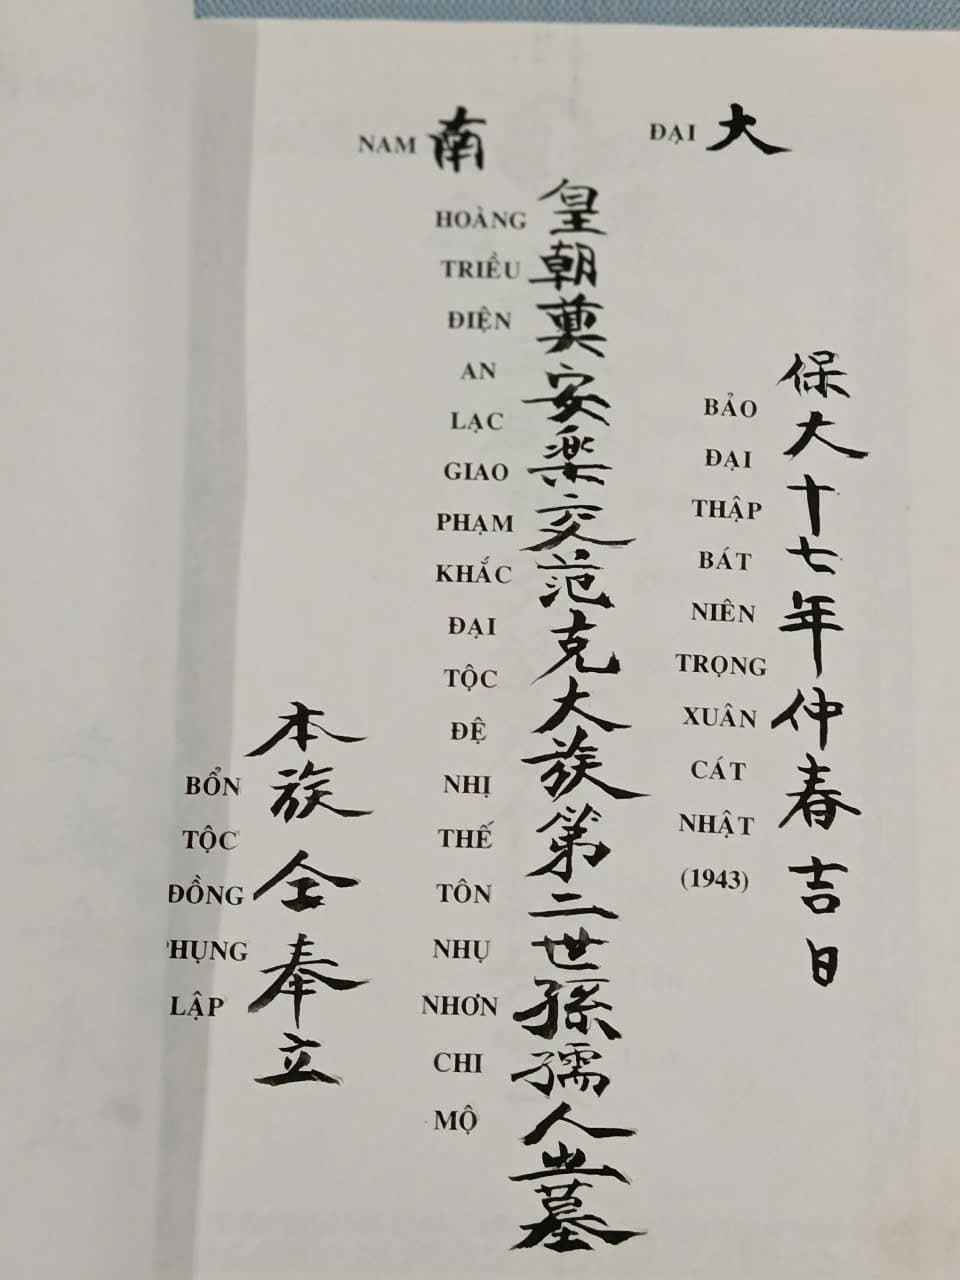 大
ĐẠI
南
NAM
保大十七年仲春吉日
BẢO
ĐẠI
THẬP
BÁT
NIÊN
TRỌNG
XUÂN
CÁT
NHẬT
(1943)
皇朝奠安楽交范克大族第二世孫孺人之墓
HOÀNG
TRIỀU
ĐIỆN
AN
LẠC
GIAO
PHẠM
KHẮC
ĐẠI
TỘC
ĐỆ
NHỊ
THẾ
TÔN
NHỤ
NHƠN
CHI
MỘ
本族仝奉立
BỔN
TỘC
ĐỒNG
PHỤNG
LẬP